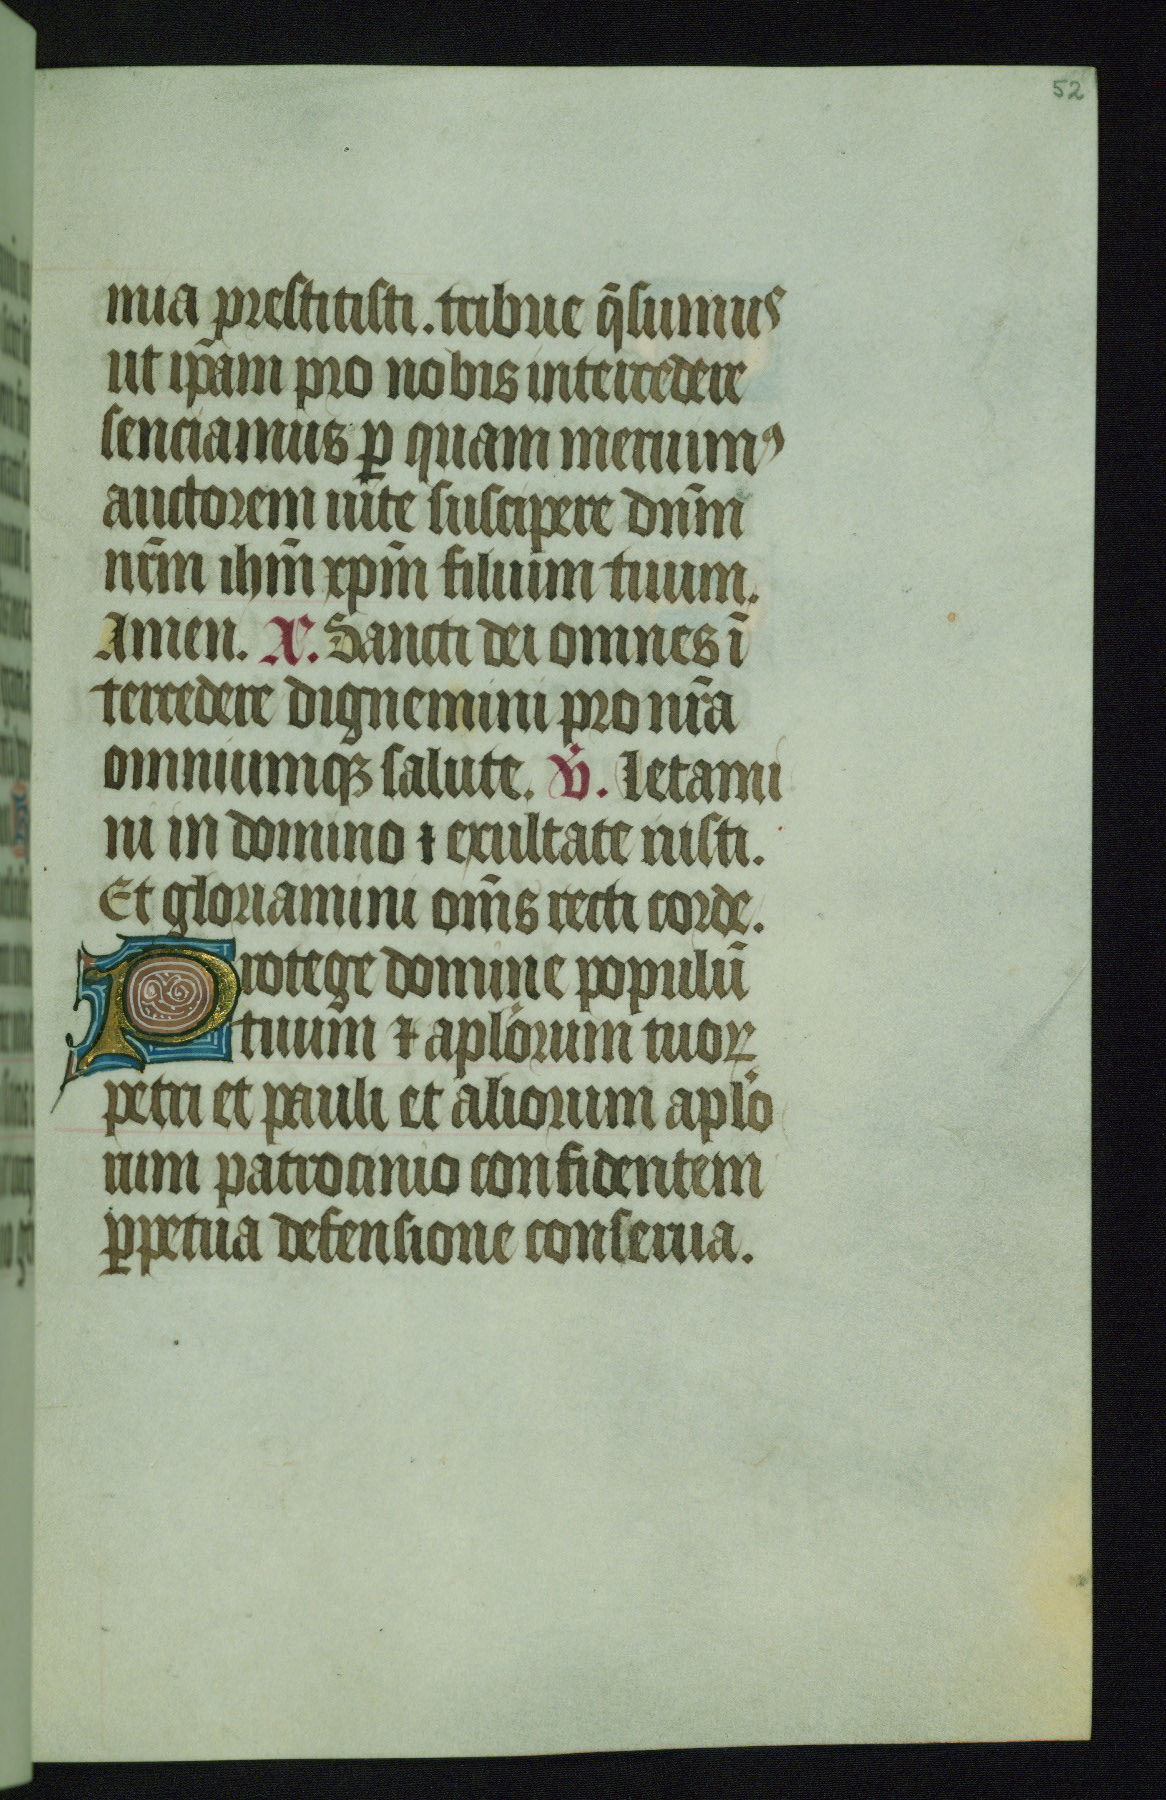 52
mia prestitisti. tribue q̄sumus
ut ip̄am pro nobis intercedere
senciamus ꝑ quam meruimꝰ
auctorem uite suscipere dn̄m
nr̄m ihm̄ xpm̄ filium tuum.
Amen. Aͨ. Sancti dei omnes ī
tercedere dignemini pro nr̄a
omniumqꝫ salute. V̇. Letami
ni in domino ⁊ exultate iusti.
Et gloriamini om̄s recti corde.
Protege domine populū
tuum ⁊ aplorum tuoꝝ
petri et pauli et aliorum aplo
rum patrocinio confidentem
ꝑpetua defensione conserua.